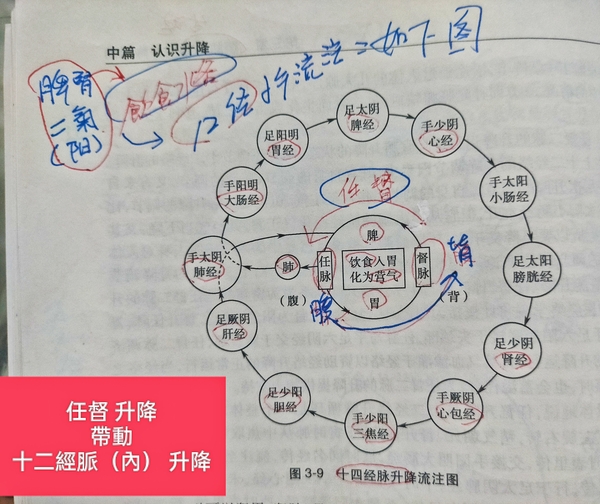 中篇 认识升降
脾胃
二氣
(阳)
飲食水路
12经升流注=如下图
足太阴
脾经
足阳明
胃经
手少阴
心经
手阳明
大肠经
手太阳
小肠经
任督
脾
手太阴
肺经
肺
任脉
饮食入胃
化为营气
督脉
背
足太阳
膀胱经
(腹)
腹
胃
(背)
足厥阴
肝经
足少阴
肾经
足少阳
胆经
手少阳
三焦经
手厥阴
心包经
任督 升降
帶動
十二經脈（內） 升降
图 3-9 十四经脉升降流注图